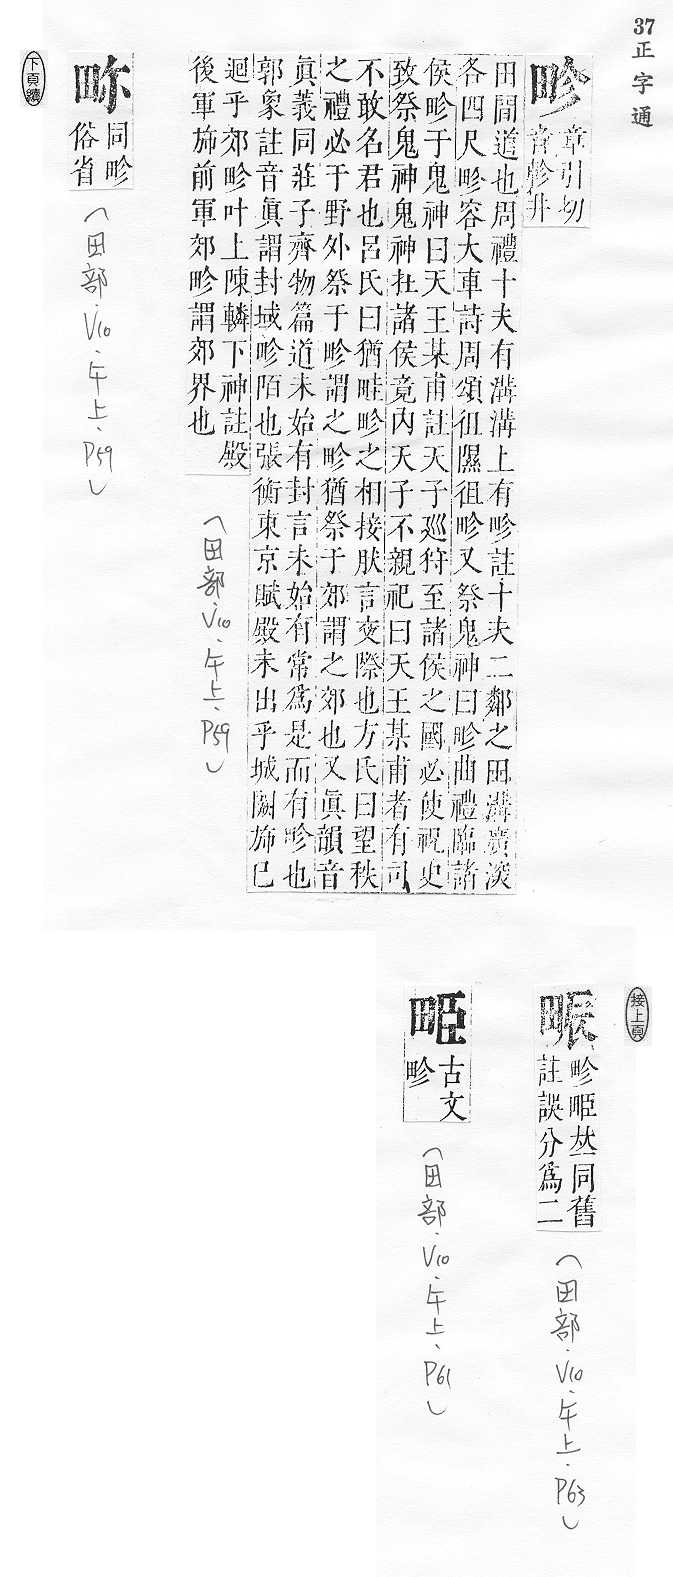 37 正字通
畛
章引切
音軫井
田閒道也周禮十夫有溝溝上有畛註十夫二鄰之田溝廣深
各四尺畛容大車詩周頌徂隰徂畛又祭鬼神曰畛曲禮臨諸
侯畛于鬼神曰天王某甫註天子廵狩至諸侯之國必使祝史
致祭鬼神鬼神在諸侯竟內天子不親祀曰天王某甫者有司
不敢名君也呂氏曰猶畦畛之相接肰言交際也方氏曰望秩
之禮必于野外祭于畛謂之畛猶祭于郊謂之郊也又眞韻音
眞義同莊子齊物篇道未始有封言未始有常爲是而有畛也
郭象註音眞謂封域畛陌也張衡東京賦殿未出乎城闕斾巳
迴乎郊畛叶上陳轔下神註殿
後軍斾前軍郊畛謂郊界也
(田部.V10.午上.P59)
畂
同畛
俗省
(田部.V10.午上.P59)
下頁續
接上頁
畍
畛㽗𠀤同舊
註誤分爲二
(田部.V10.午上.P63)
㽗
古文
畛
(田部.V10.午上.P61)